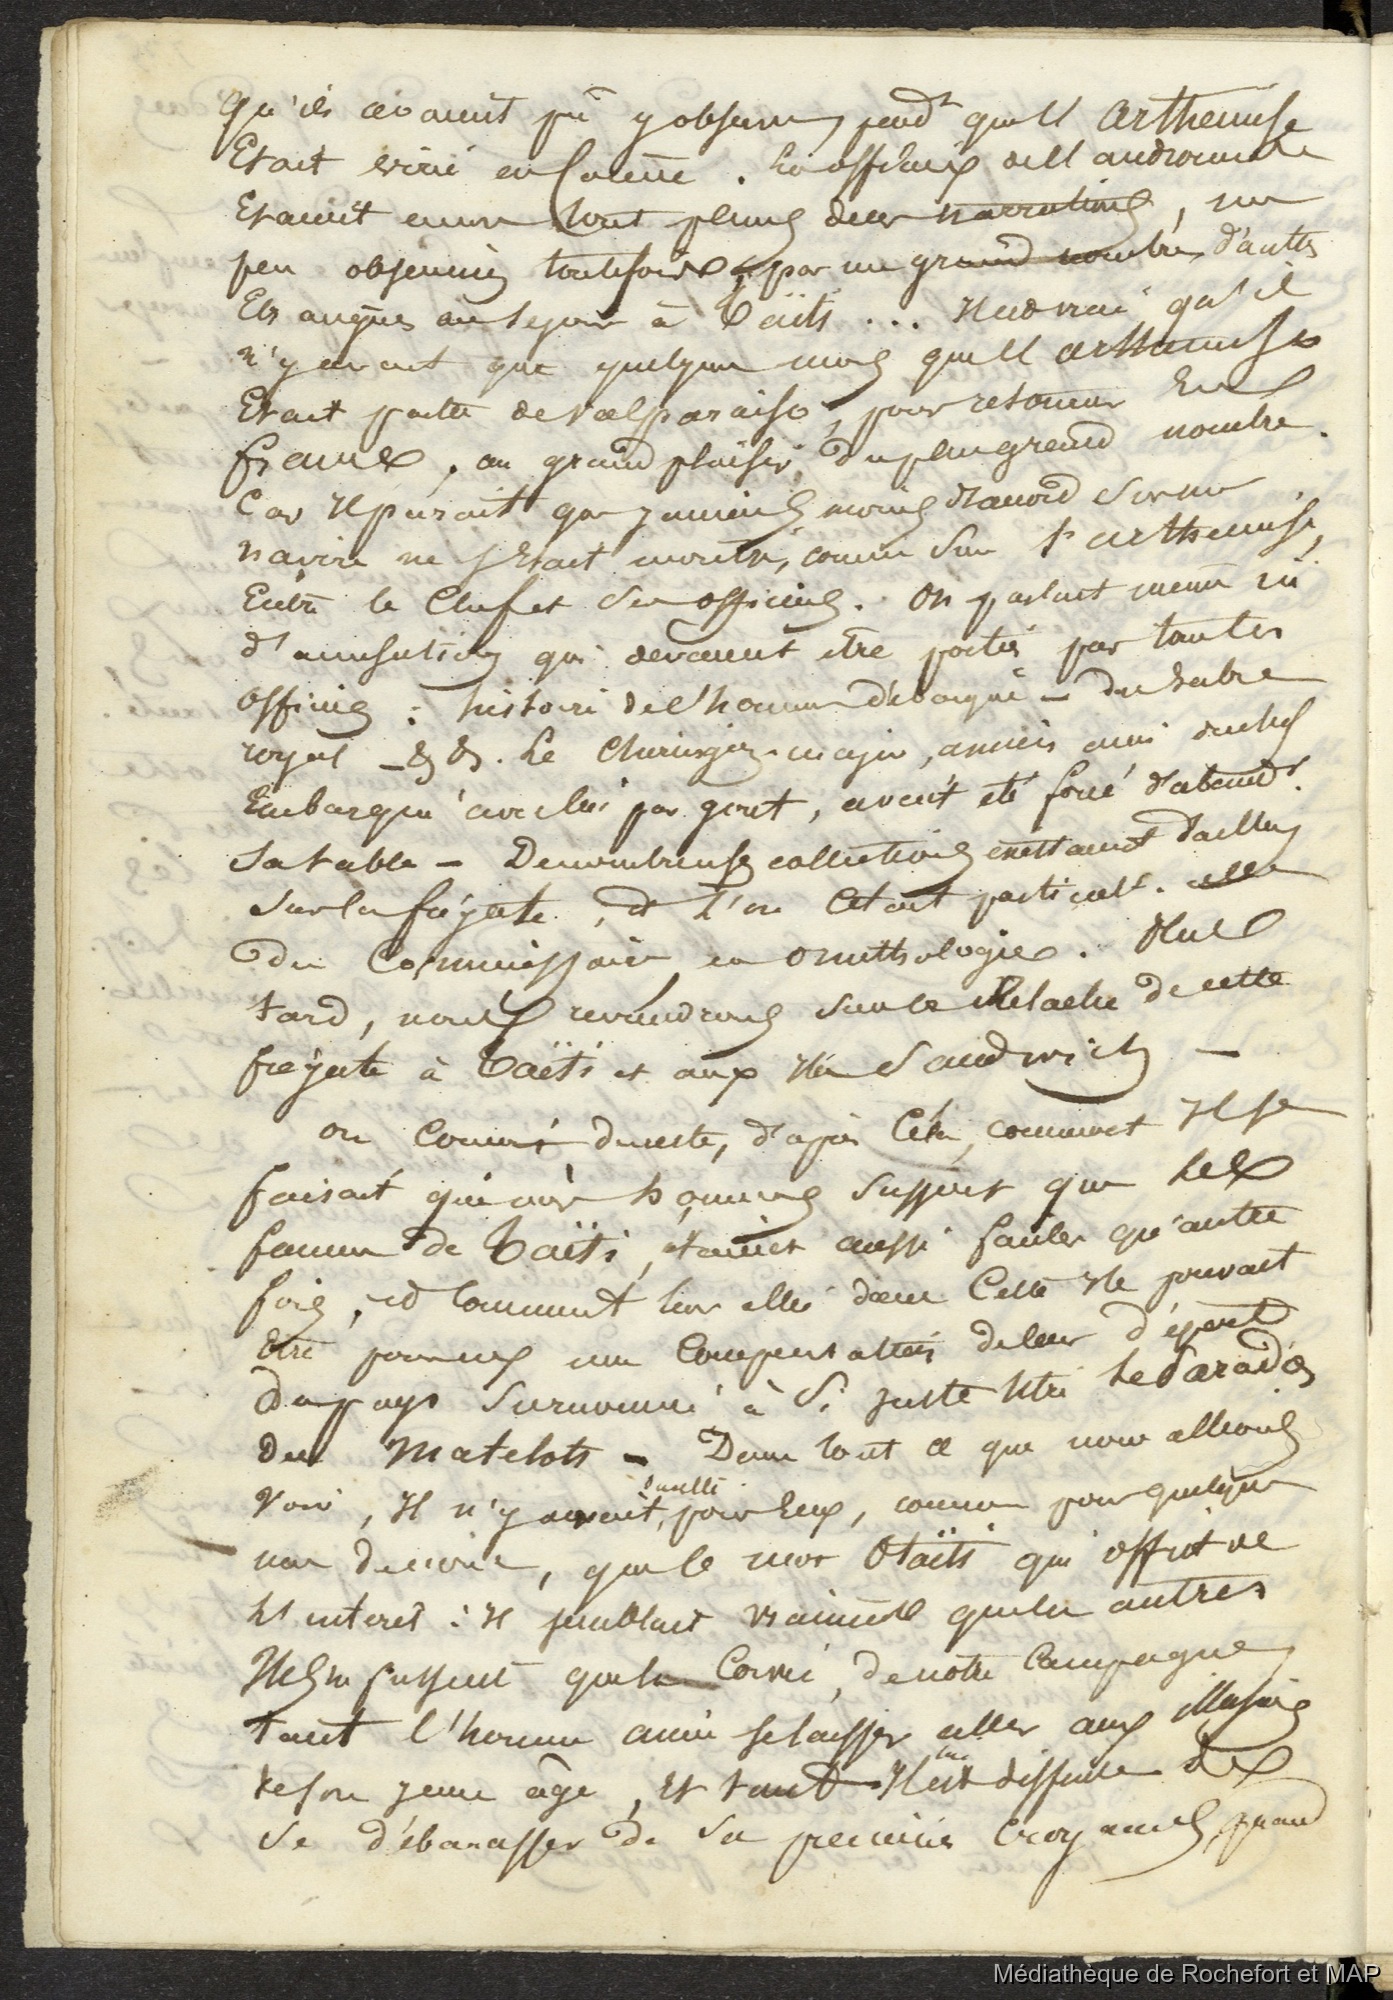 qu'ils avaient pu y observer pend.t que l'arthemise
Etait virée en Carène. Les officiers de l'andromède
Etaient encore tout pleins de ces narrations, un
peu obscurcies toutefois par un grand nombre d'autres
Etrangères au séjour à Taïti ... Il est vrai qu'il
n'y avait que quelques mois que l'arthemise
Etait partie de valparaiso, pour retourner En
france, au grand plaisir du plus grand nombre.
Car Il parait que jamais moins d'accord sur un
navire ne s'Etait montré, comme sur l'arthemise,
Entre le Chef et ses officiers. On parlait même ici
d'accusations qui devaient être portées par tous les
officiers : histoire de l'homme débarqué - du sabre
royal - &.&. Le Chirurgien-major, ancien ami du chef
Embarqué avec lui par gout, avait été forcé d'aband.r
sa table - De nombreuses collections existaient d'ailleurs
sur la frégate, et l'on Citait particul.t celle
du Commissaire en ornithologie. Plus
tard, nous reviendrons sur la Relache de cette
frégate à Taïti et aux Iles Sandwich -
on Conçoit du reste, d'après Cela, comment Il se
faisait que nos hommes sussent que les
femmes de Taïti étaient aussi faciles qu'autre
fois, et Comment leur idée dans Cette Ile pouvait
Etre pour eux une Compensation de leur départ
du pays surnommé à si juste titre le Paradis
des Matelots - Dans tout ce que nous allions
voir, Il n'y avait, pour Eux, comme pour quelques
uns de nous, que le mot Otaïti qui offrit de
l'interêt : Il semblait vraiment que les autres
Iles ne fussent que la Corvée de notre Campagne,
tant l'homme aime se laisser aller aux illusions
de son jeune âge, Et tant Il est difficile de
se débarasser de ses premières Croyances, quand
Médiathèque de Rochefort et MAP